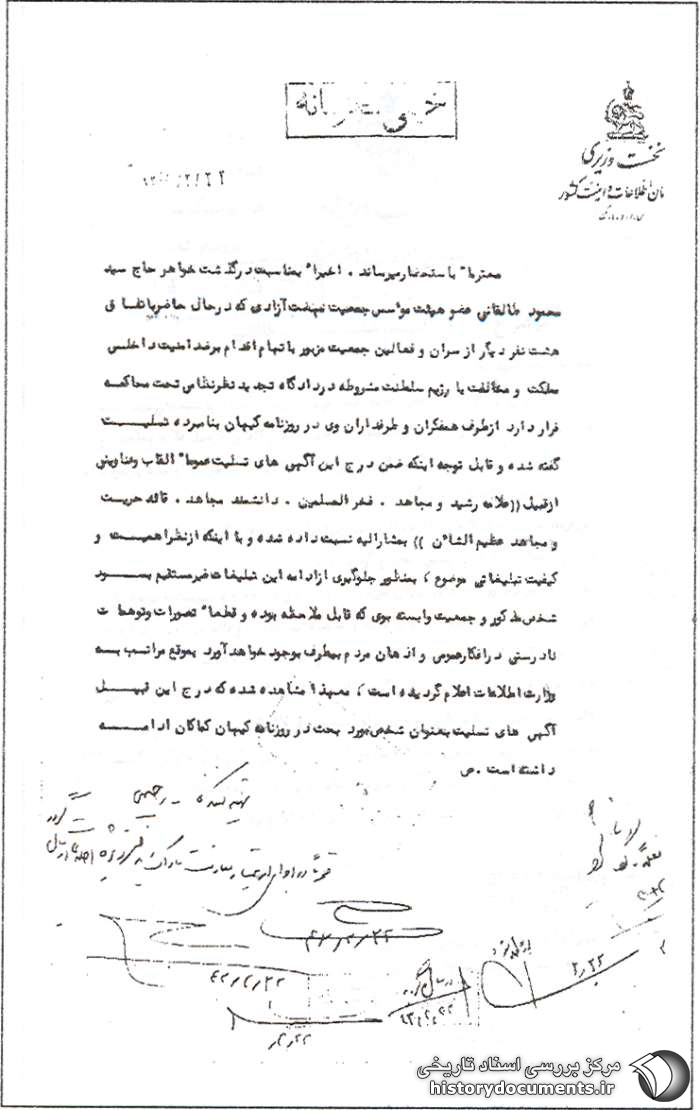 خیلی محرمانه
نخست وزیری
سازمان اطلاعات و امنیت کشور
محترما" باستحضار میرساند . اخیرا" بمناسبت درگذشت خواهر حاج سید
محمود طالقانی عضو هیئت موسس جمعیت نهضت آزادی که در حال حاضر باتفاق
هشت نفر دیگر از سران و فعالین جمعیت مزبور باتهام اقدام برضد امنیت داخلی
مملکت و مخالفت با رژیم سلطنت مشروطه در دادگاه تجدید نظر نظامی تحت محاکمه
قرار دارد ازطرف همفکران و طرفداران وی در روزنامه کیهان بنامبرده تسلیت
گفته شده و قابل توجه اینکه ضمن درج این آگهی های تسلیت عموما" القاب وعناوینی
ازقبیل ((علامه رشید و مجاهد . فخر المسلمین . دانشمند مجاهد . قائد حریت
و مجاهد عظیم الشان )) بمشارالیه نسبت داده شده و با اینکه ازنظر اهمیت و
کیفیت تبلیغاتی موضوع ، بمنظور جلوگیری از ادامه این تبلیغات غیرمستقیم بسود
شخص مذکور و جمعیت وابسته بوی که قابل ملاحظه بوده و قطعا" تصورات وتوهمات
نادرستی در افکار عمومی و اذهان مردم بیطرف بوجود خواهد آورد بموقع مراتب به
وزارت اطلاعات اعلام گردیده است ، معهذا مشاهده شده که درج این قبیل
آگهی های تسلیت بعنوان شخص مورد بحث در روزنامه کیهان کماکان ادامه
داشته است . ص
تهیه کننده - رحیمی
۴۳/۲/۲۲
۴۳/۲/۲۲
۲/۲۲
مرکز بررسی اسناد تاریخی
historydocuments.ir